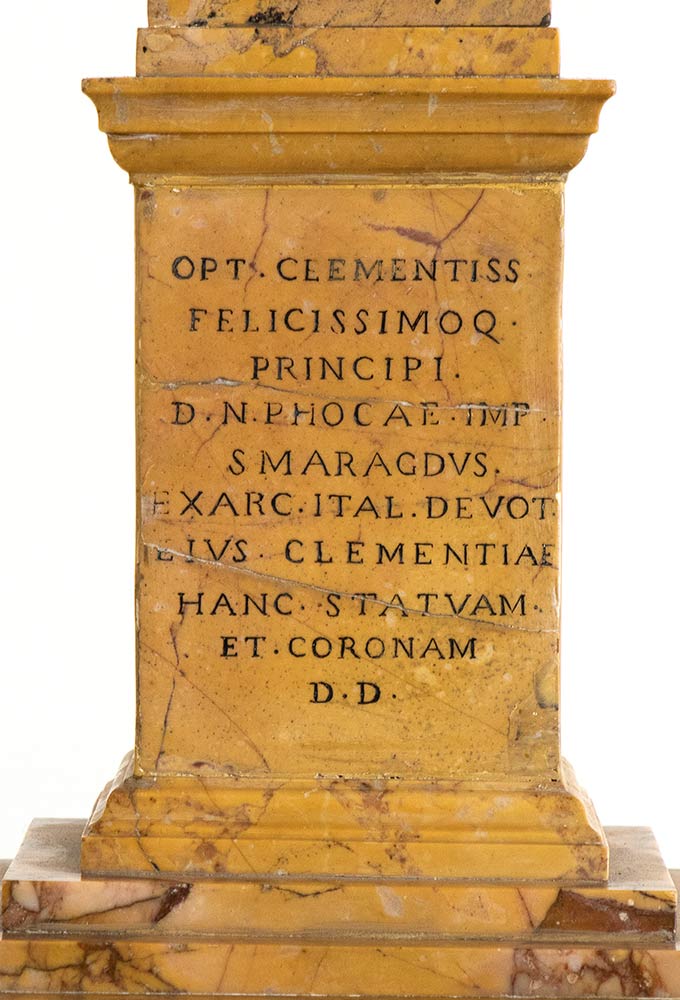 OPT · CLEMENTISS
FELICISSIMOQ ·
PRINCIPI ·
D · N · PHOCAE · IMP ·
SMARAGDVS ·
EXARC · ITAL · DEVOT
EIVS · CLEMENTIAE
HANC · STATVAM ·
ET · CORONAM
D · D ·